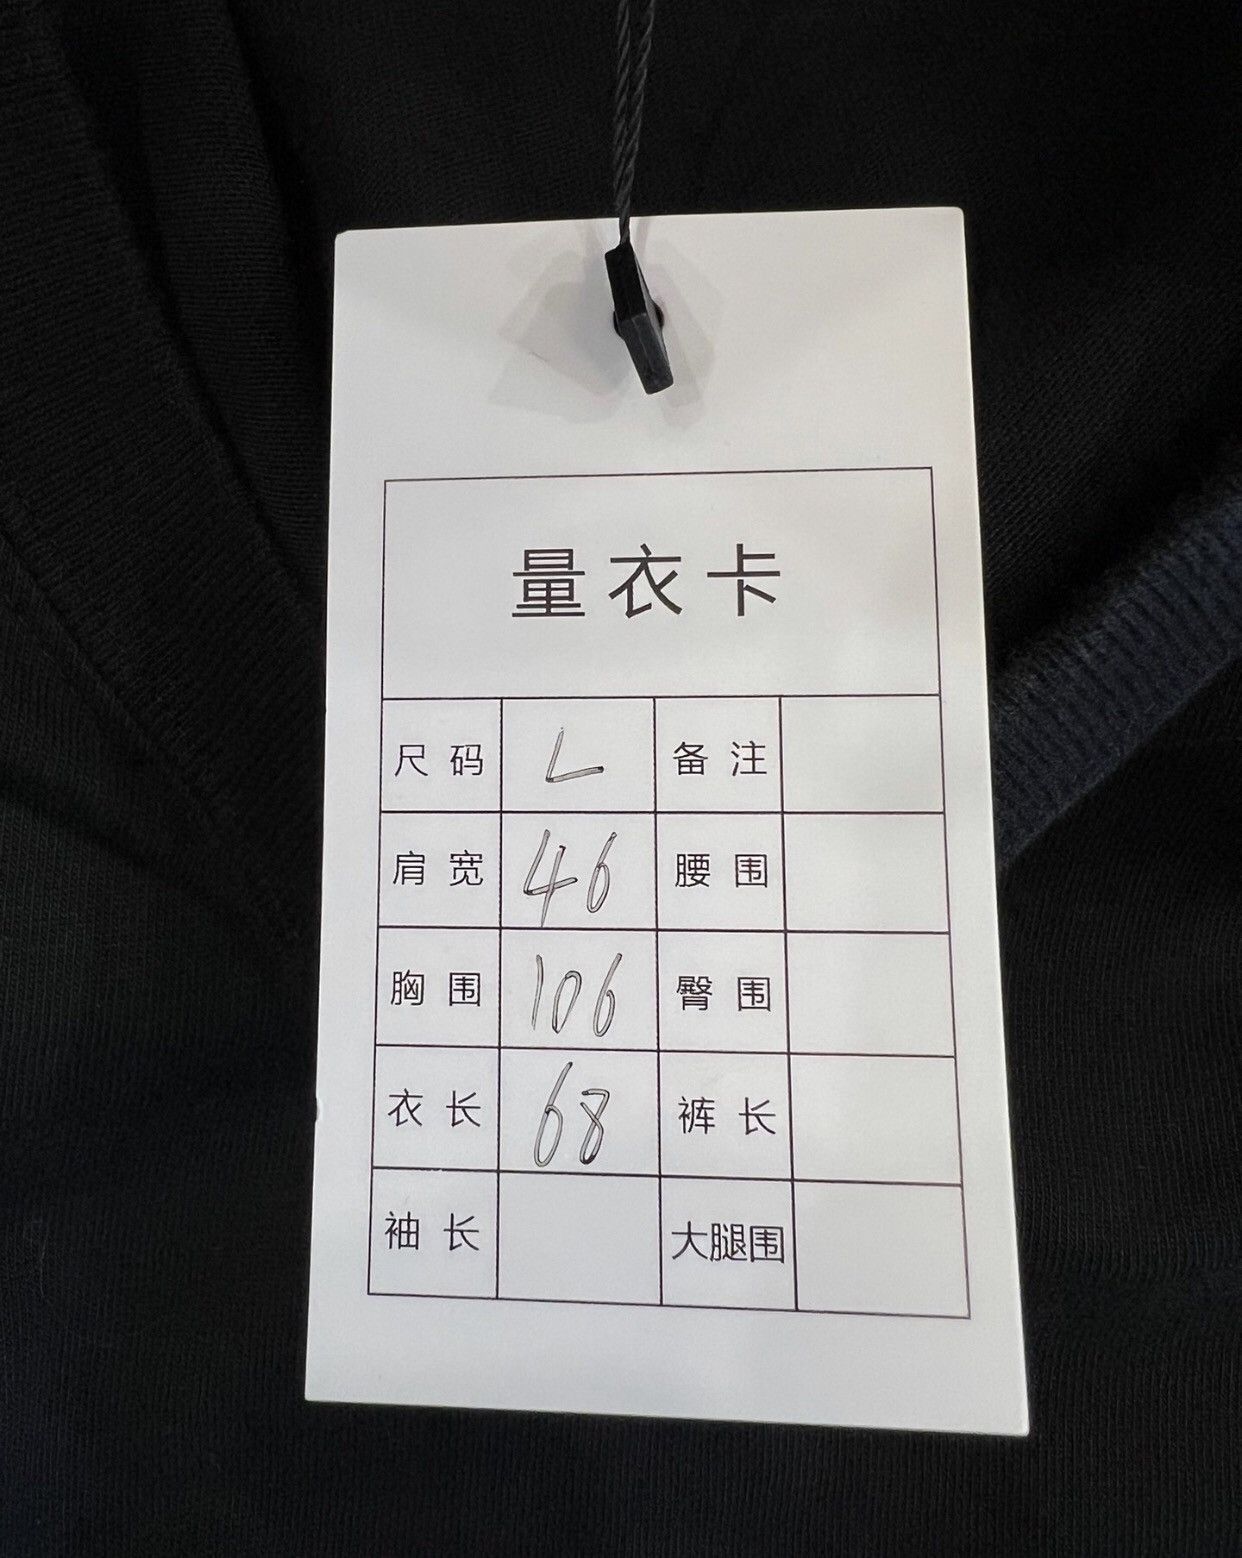 量衣卡
尺码 L 备注
肩宽 46 腰围
胸围 106 臀围
衣长 68 裤长
袖长 大腿围